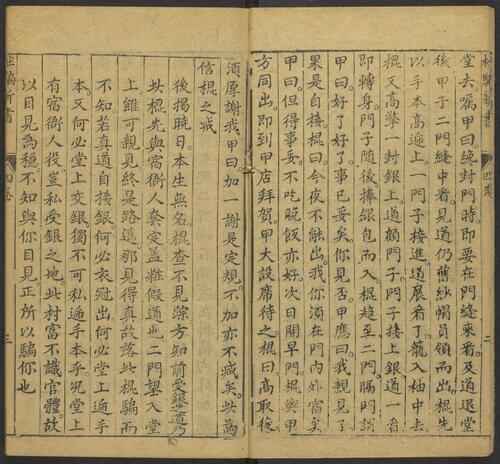 杜騙新書 四卷 二
堂去嘱甲曰緫封門時即要在門縫來看及道退堂
後甲于二門縫中看見道仍舊紗帽員領而出棍先
以手本高遞上一門子接進道展看了籠入袖中去
棍又高擎一封銀上道顧門子門子接上銀道一首
即轉身門子随後捧銀包而入棍趋至二門隔門說
甲曰好了好了事已妥矣你見否甲應曰我親見了
果是自接棍曰今夜不能出我你須在門内外宿矣
甲曰但得事妥不吃晚飯亦好次日開早門棍與甲
方同出即到甲店拜賀甲大設席待之棍曰高取後
須原謝我甲曰加一謝是定規不加亦不減矣此為
信棍之戒
後揭曉日本生無名棍查不見踪方知前受銀道乃
此棍先與宿衙人套定盖粧假道也二門望入堂
上雖可親見終是路遥那見得真故落此棍騙而
不知若真道自接銀何必衣冠出何必堂上逓手
本又何必堂上交銀獨不可私逓手本乎况堂上
有宿衙人役豈私受銀之地此村富不識官體故
以目見為穩不知與你目見正所以騙你也
杜騙新書 四卷 三